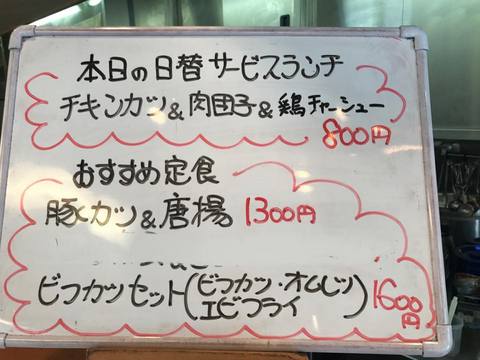 本日の日替サービスランチ
チキンカツ&肉団子&鶏チャーシュー
800円
おすすめ定食
豚カツ&唐揚 1300円
ビフカツセット(ビフカツ・オムレツ
エビフライ) 1600円